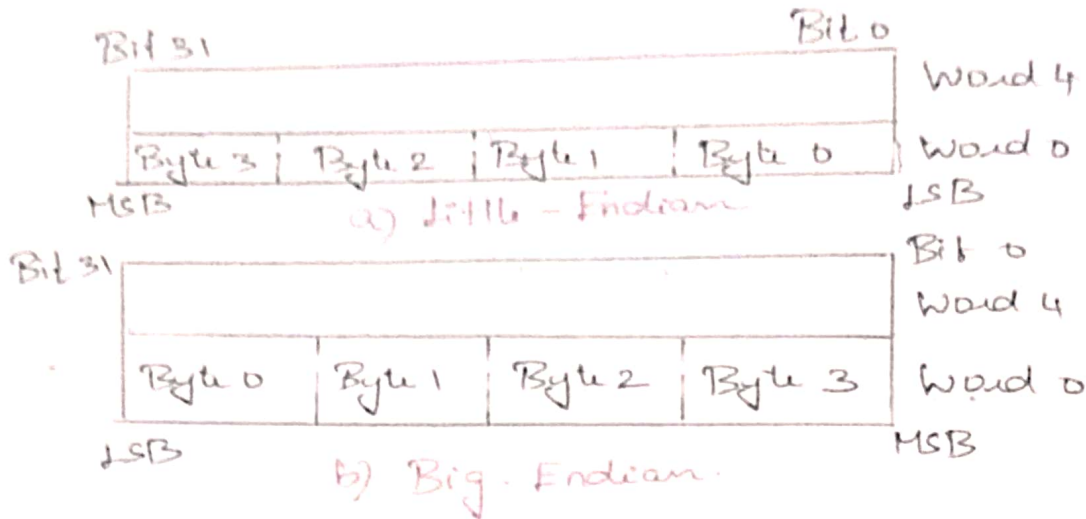 Bit 31 Bit 0
Word 4
Byte 3 Byte 2 Byte 1 Byte 0 Word 0
MSB LSB
a) Little - Endian
Bit 31 Bit 0
Word 4
Byte 0 Byte 1 Byte 2 Byte 3 Word 0
LSB MSB
b) Big. Endian.